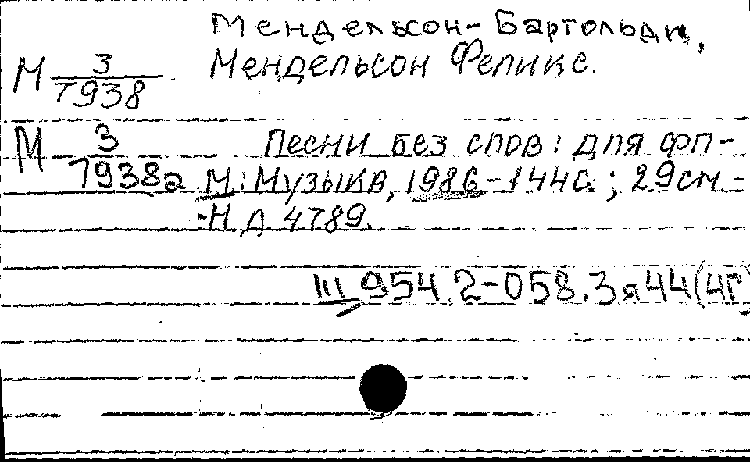 Мендельсон-Бартольди,
М 3/7938 Мендельсон Феликс.
М 3/7938а Песни без слов: для фп-
М: Музыка, 1986-144с.; 29см-
-Н Д 4789.
Щ 954.2-058.3я44(4Г)